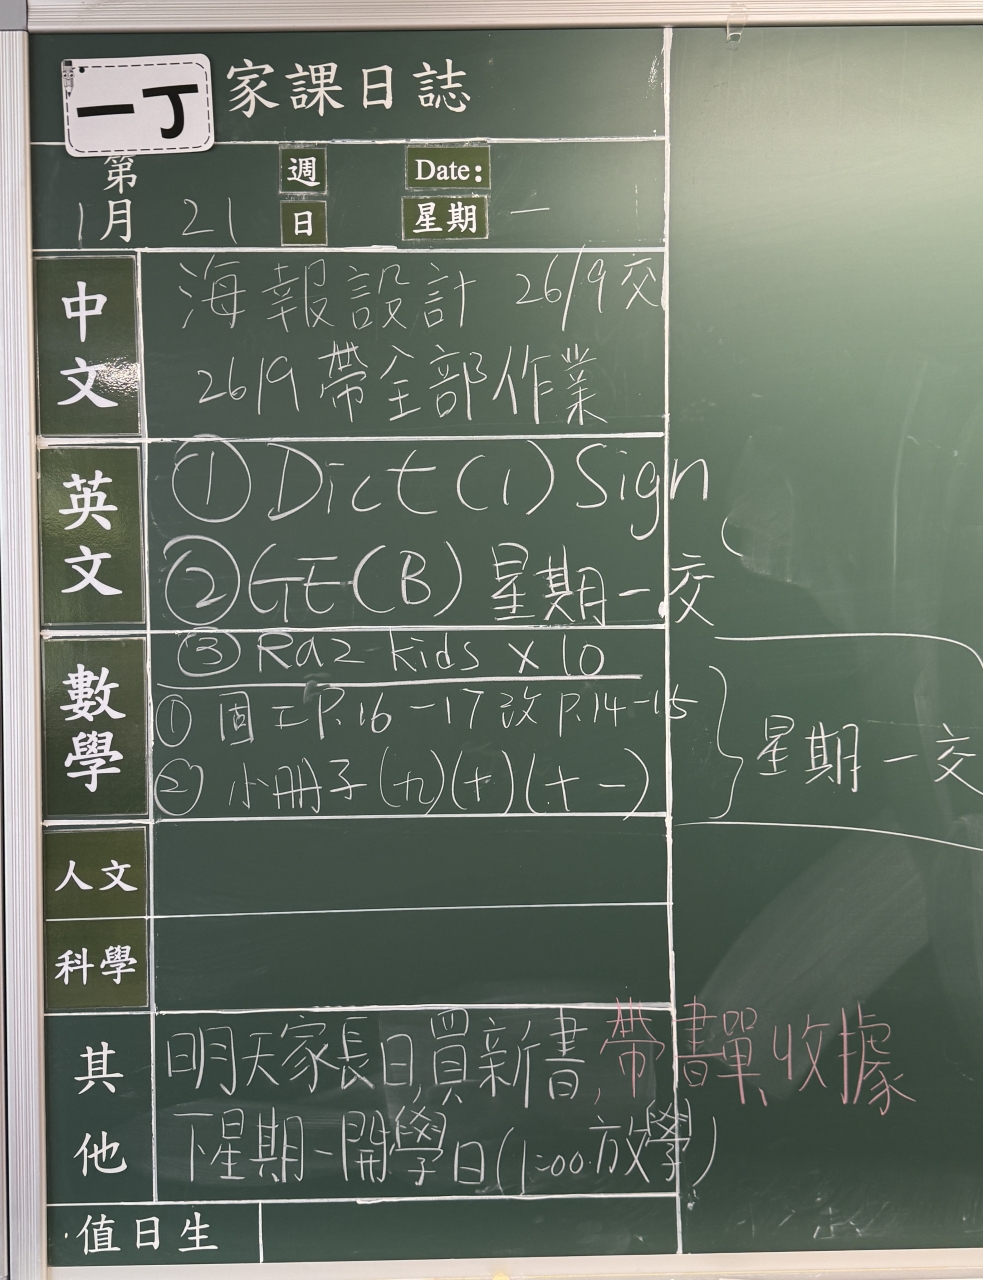 一丁 家課日誌
第 週 Date:
1月 21 日 星期 一
中文
海報設計 26/9交
26/9 帶全部作業
英文
① Dict (1) Sign
② GE(B) 星期一交
③ Raz kids x 10
數學
① 固工P.16-17 改 P.14-15
② 小冊子(九)(十)(十一)
星期一交
人文
科學
其他
明天家長日,買新書,帶書單,收據
下星期一開學日(1:00放學)
值日生